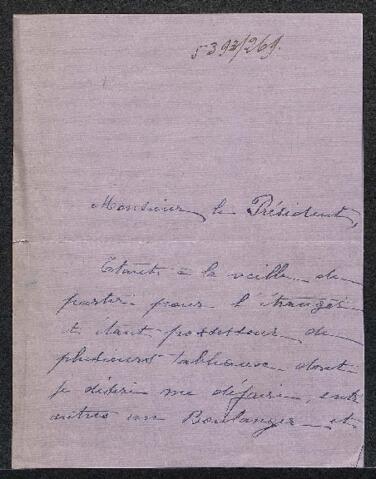 5393/269.
Monsieur le Président,
Etant à la veille de
partir pour l'étranger
et étant possesseur de
plusieurs tableaux dont
je désire me défaire, entr
autres un Boulanger et